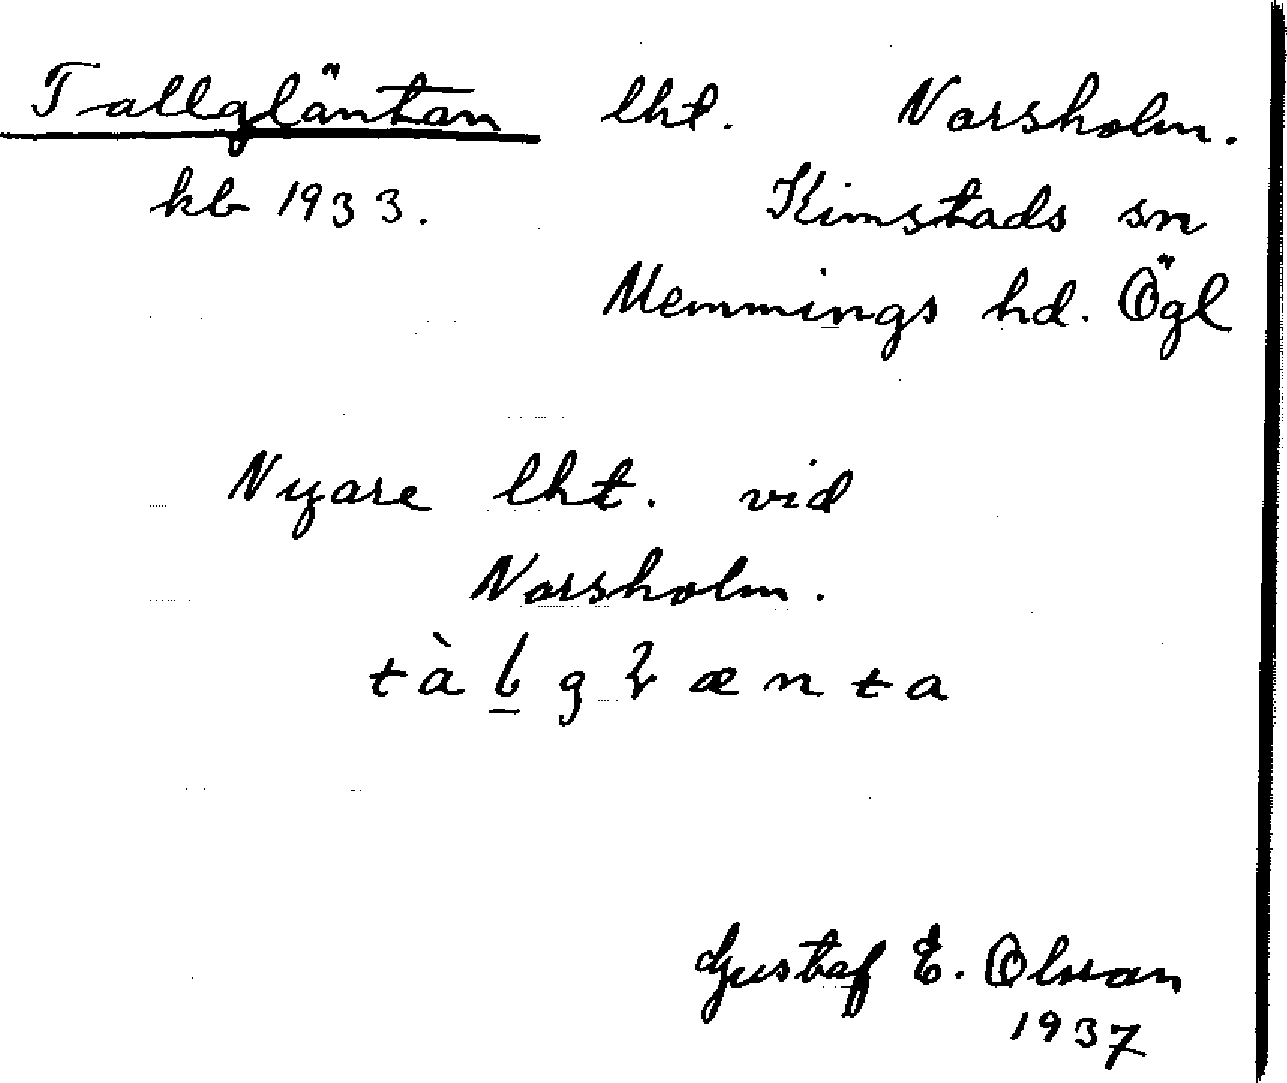 Tallgläntan lht. Norsholm.
kb 1933. Kimstads sn
Memmings hd. Ögl
Nyare lht. vid
Norsholm.
Gustaf E. Olsson
1937